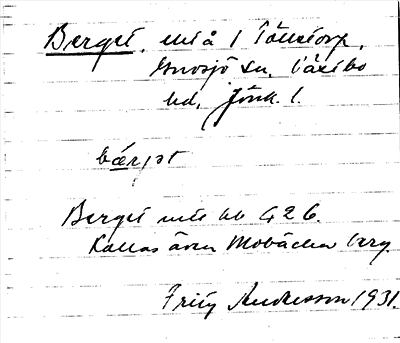 Berget, utl å 1 Tåketorp,
Gnosjö sn, Västbo
hd, Jönk. l.
bärjət
Berget utl bl G 2 6.
Kallas även Mobäcken berg.
Fritz Andersson 1931.